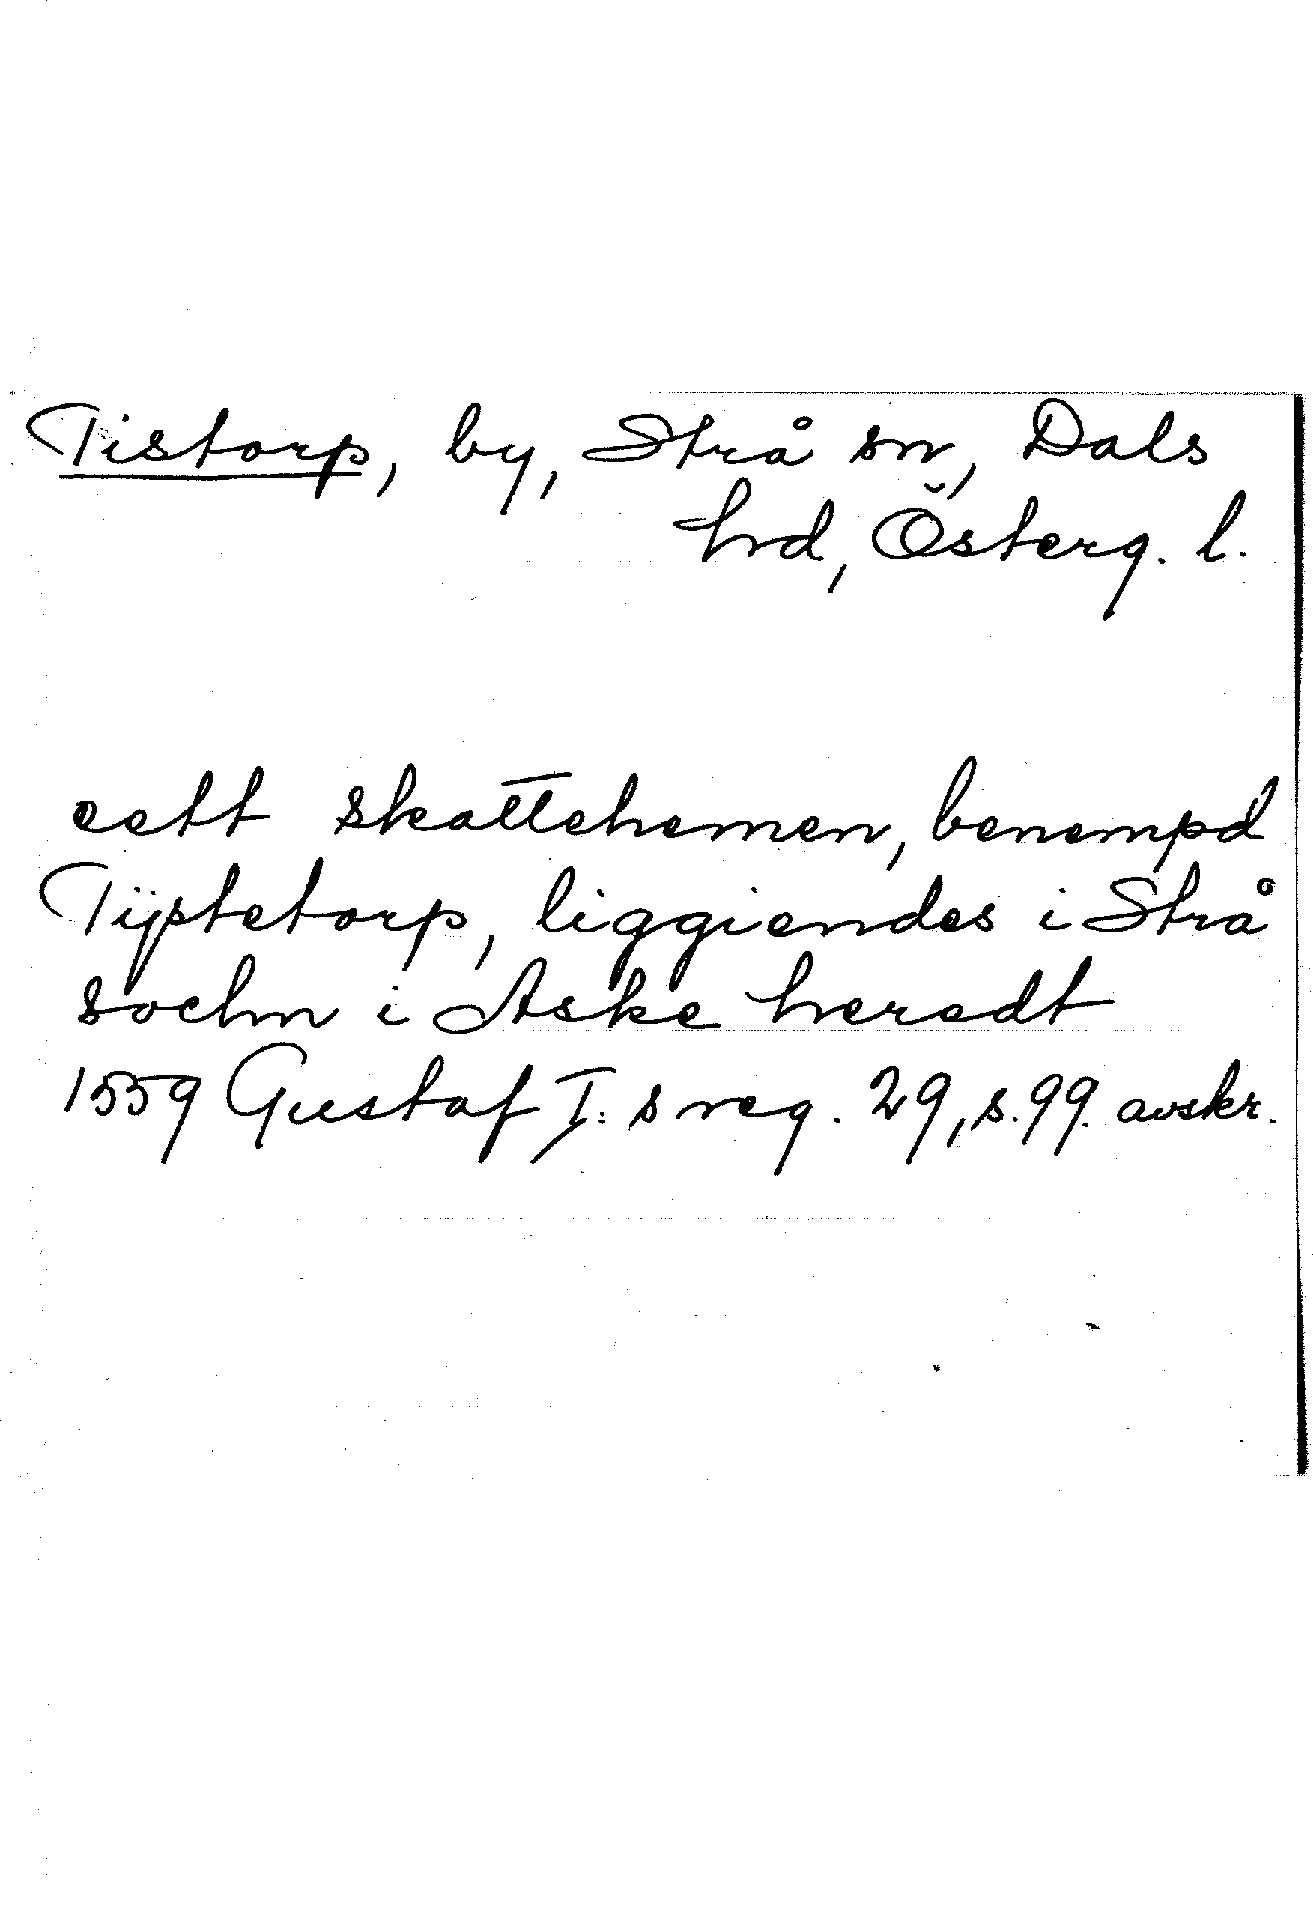 Tistorp, by, Strå sn, Dals
hrd, Österg. l.
eett skattehemen, benempd
Tijstetorp, liggiendes i Strå
sochn i Aske heredt
1559 Gustaf I:s reg. 29, s. 99. avskr.